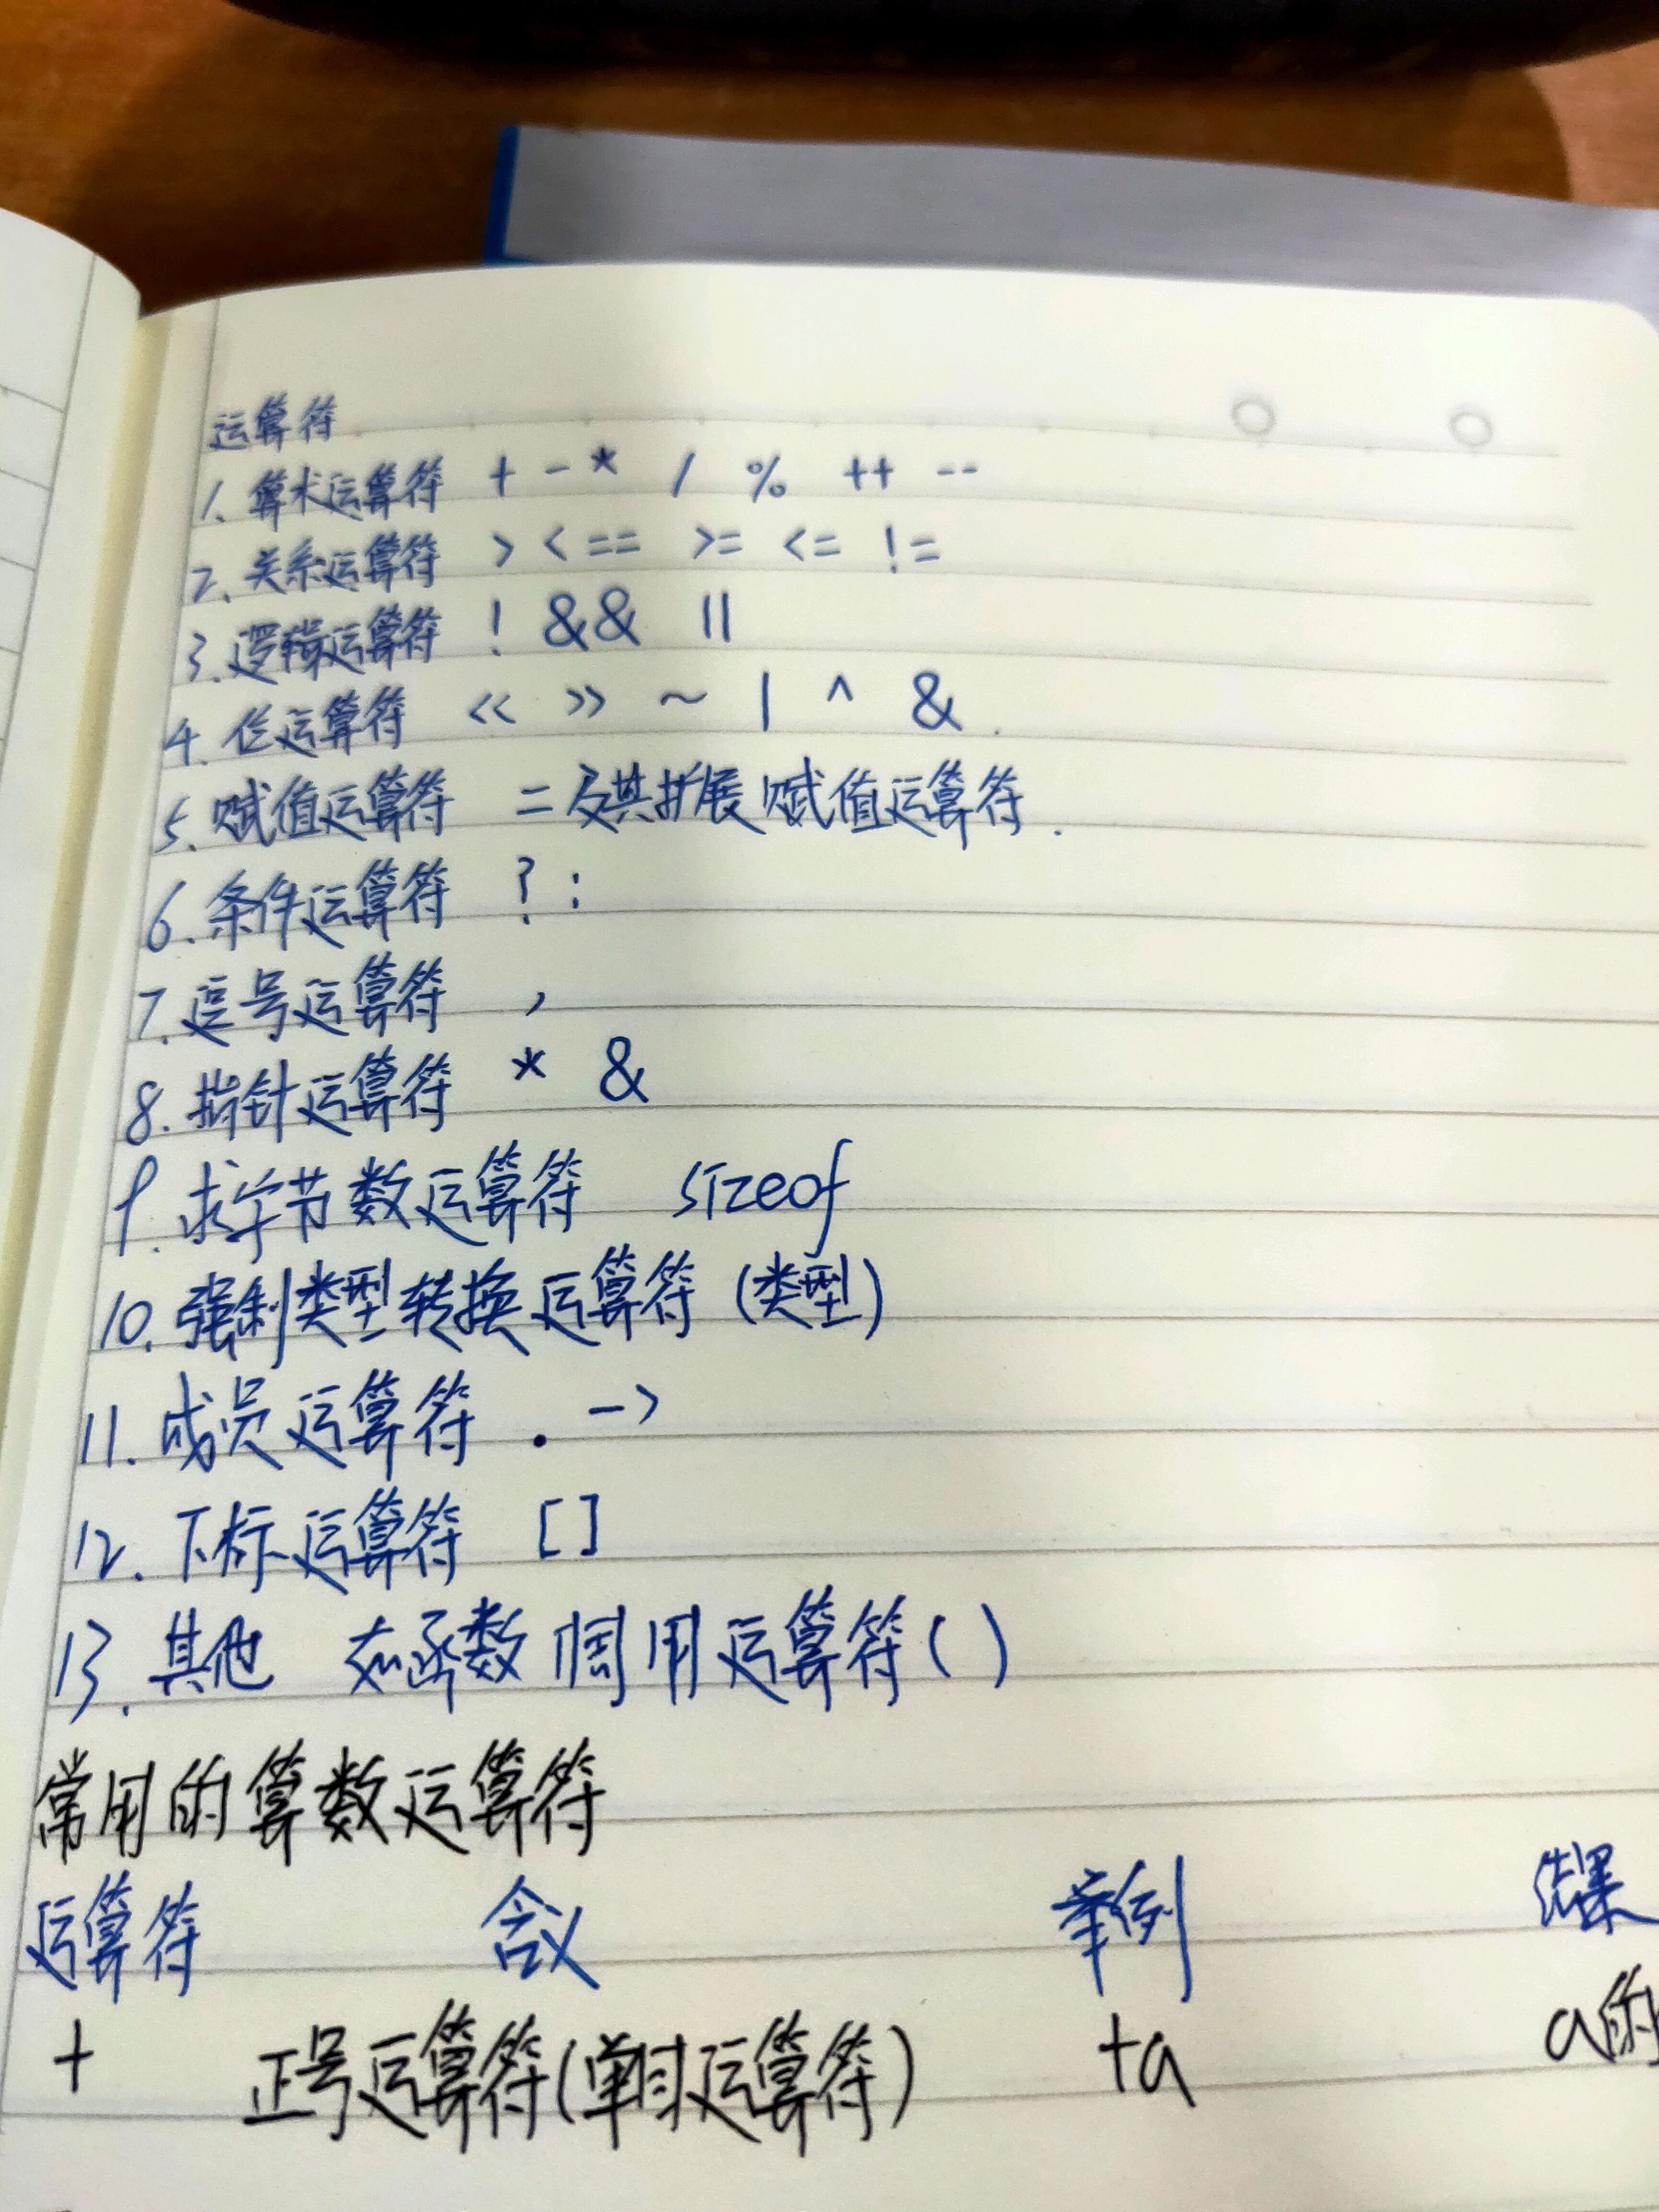 运算符
1. 算术运算符 + - * / % ++ --
2. 关系运算符 > < == >= <= !=
3. 逻辑运算符 ! && ||
4. 位运算符 << >> ~ | ^ &.
5. 赋值运算符 = 及其扩展赋值运算符.
6. 条件运算符 ? :
7. 逗号运算符 ,
8. 指针运算符 * &
9. 求字节数运算符 sizeof
10. 强制类型转换运算符 (类型)
11. 成员运算符 . ->
12. 下标运算符 []
13. 其他 如函数调用运算符()
常用的算数运算符
运算符 含义 举例 结果
+ 正号运算符(单目运算符) +a a的